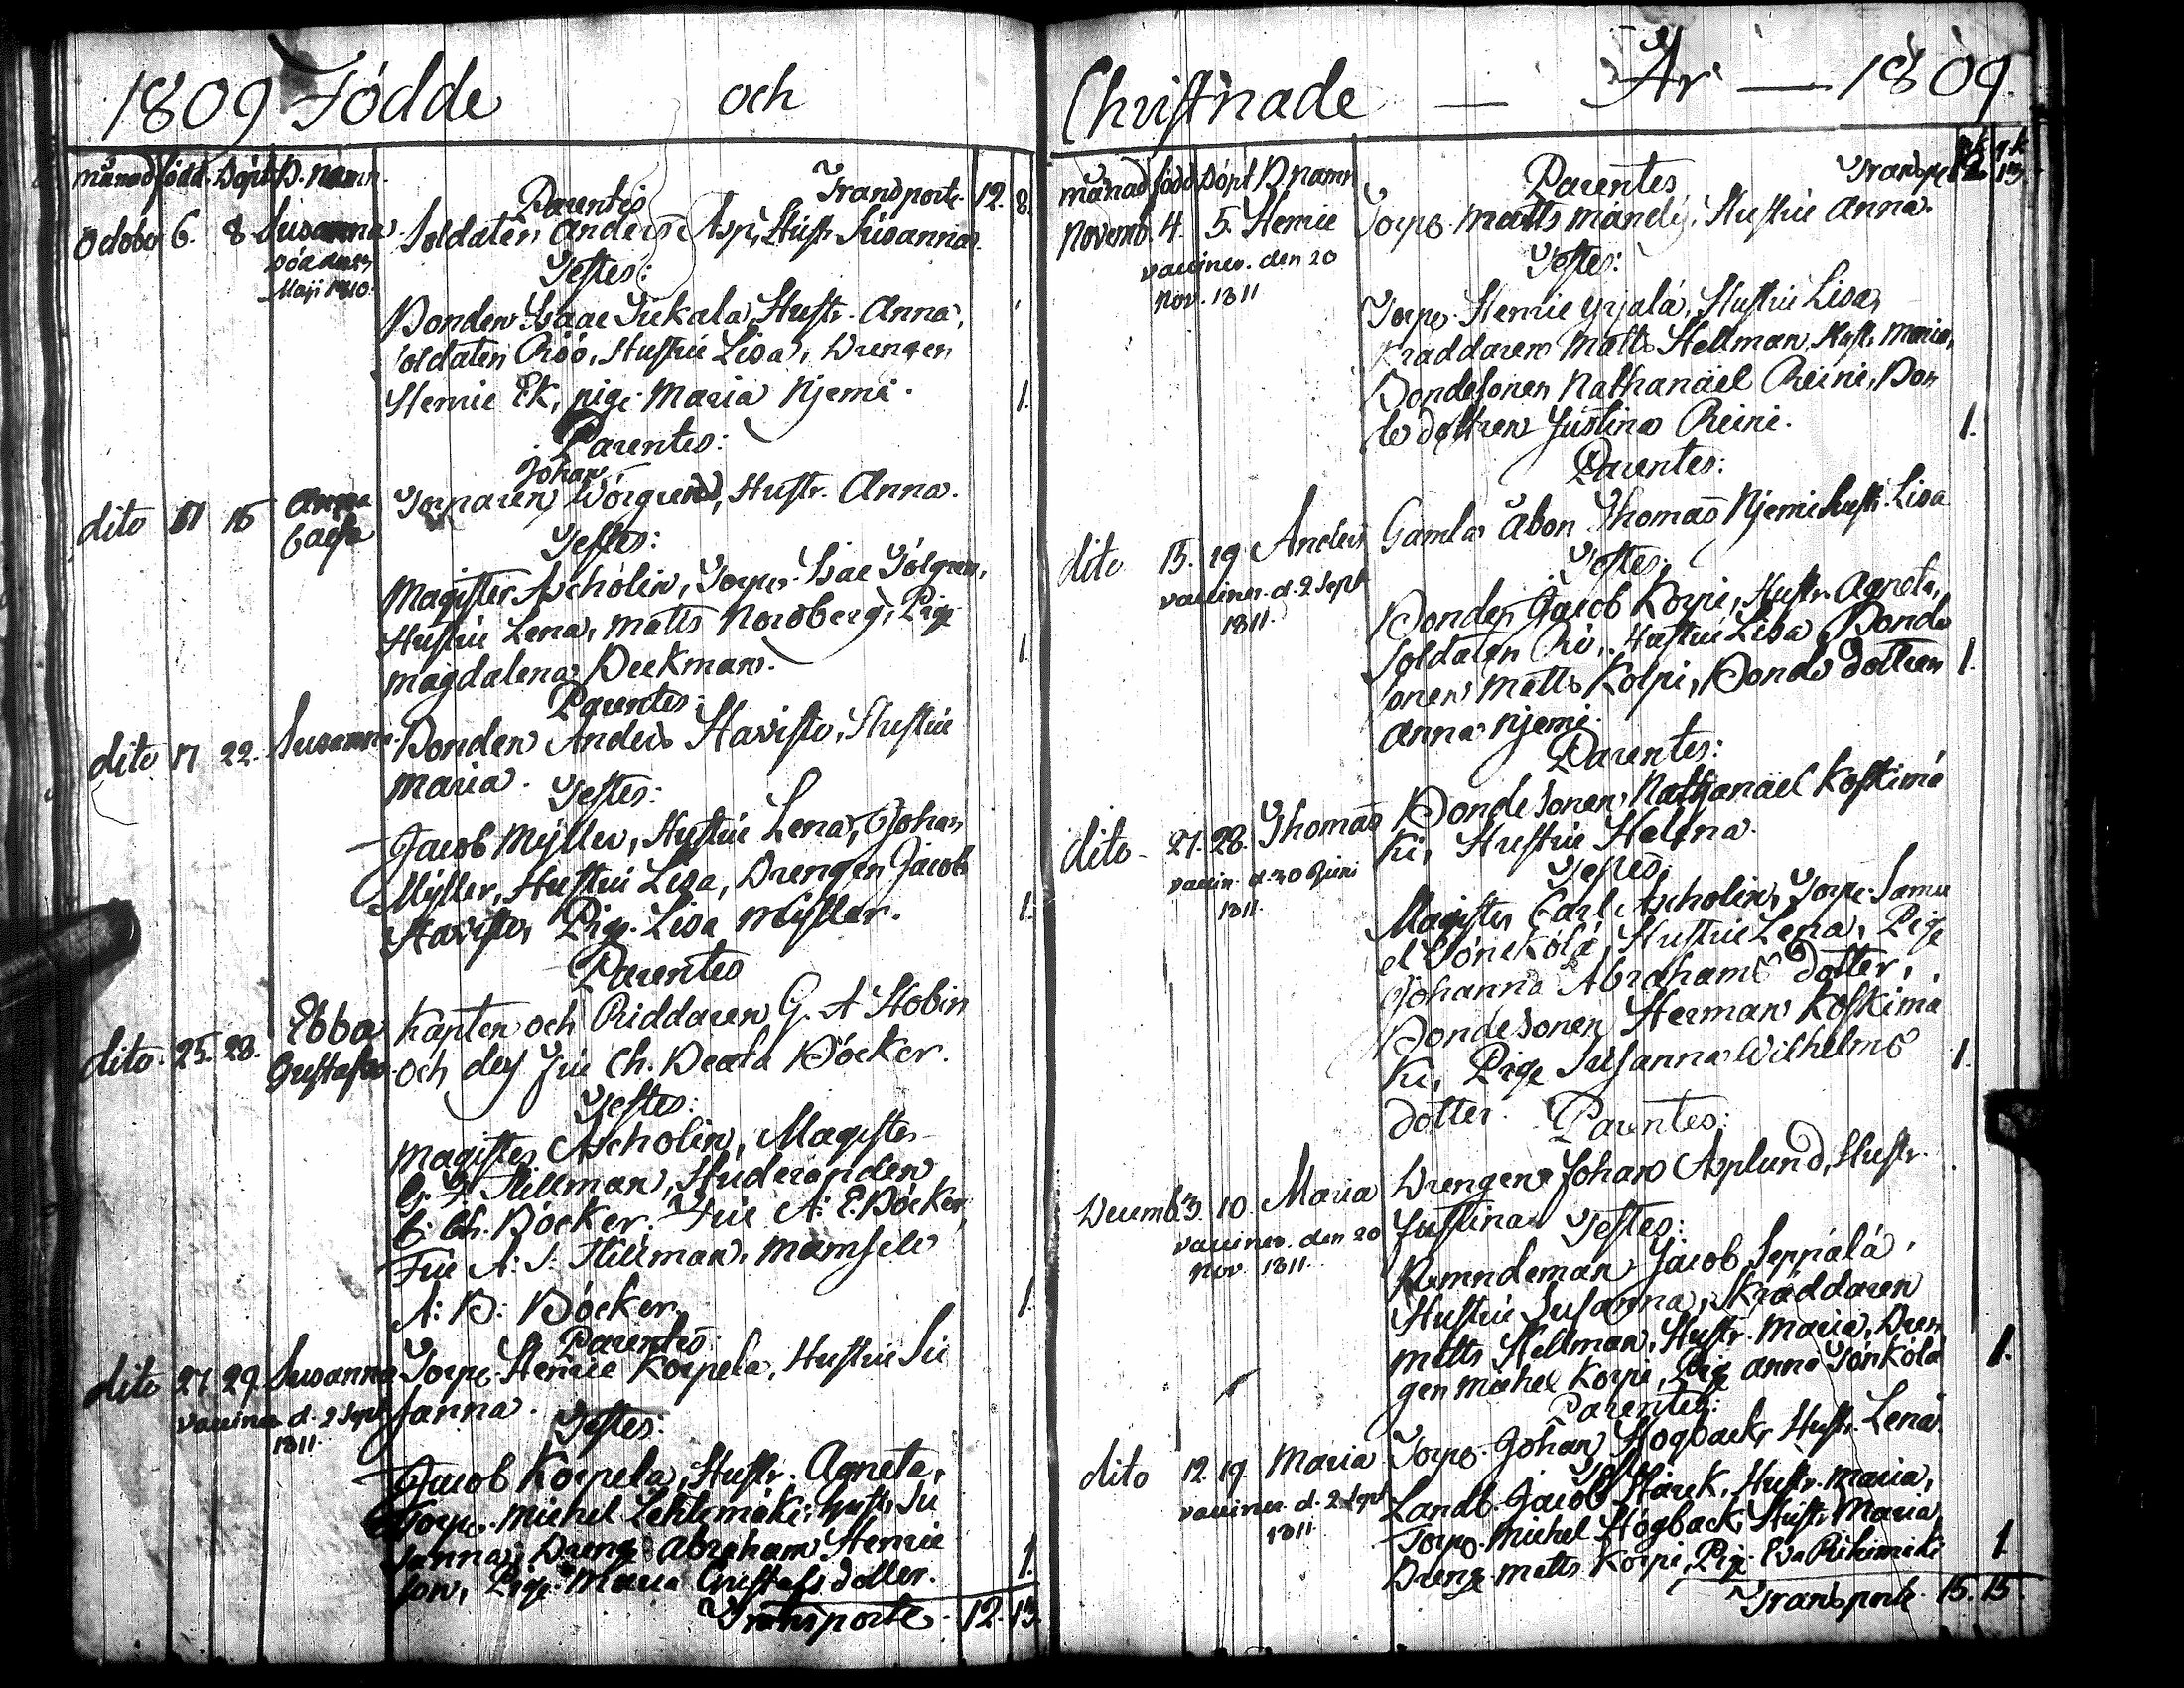 1809 Födde och
månad född Döpt B. Namn
Parentes Transporte 12. 8.
October 6. 8 Susanna Soldaten Anders Asp, Hustr. Susanna.
död den
Maji 1810.
Testes:
Bonden Isaac Jukala, Hustr. Anna,
Soldaten Röö, Hustru Lisa, Drengen
Henric Ek, pig. Maria Njemi. 1.
Parentes:
Johan
dito 15 Anna Torparen Hustr. Anna.
Testes:
Magister Ascholin, Torp. Isac
Hustru Lena, Matts Nordberg, Pig.
Magdalena Beckman. 1.
Parentes:
dito 17 22. Susanna Bonden Anders Havisto, Hustru
Maria. Testes:
Jacob Mÿller, Hustru Lena, Johan
Mÿller, Hustru Lisa, Drengen Jacob
Havisto, Pig. Lisa Mÿller. 1.
Parentes
dito. 25. 28. Ebba Kapten och Riddaren G. A Hobin
Gustafva och des Fru Ch. Beata Böcker.
Testes:
Magister Ascholin, Magister
G. F Stillman, Studeranden
C. Ch. Böcker. Fru A: E. Böcker,
Fru A: S: Stillman, Mamsell
A: B: Böcker. 1.
Parentes:
dito 27. 29. Susanna Torp. Henric Korpela, Hustru Su
vaccines d. 2 Sept sanna.
1811. Testes:
Jacob Korpela, Hustr. Agneta,
Torp. Michel Lehtimäki, Hustr. Su
sanna, Dreng Abraham Henric
son, Pige Maria Gustafs dotter. 1.
Transporte. 12. 13.
Christnade — År — 1809.
månad född Döpt B namn
Parentes Transport 12 13
Novemb. 4. 5. Henric Torp. Matts Mändÿ, Hustru Anna.
vaccines. den 20
Nov. 1811
Testes:
Torp. Henric Yrjälä, Hustru Lisa,
Skräddaren Matts Hellman, Hustr. Maria,
Bondesonen Nathanäel Reini, Bon
de dottren Justina Reini. 1.
Parentes:
dito 15. 19. Anders Gamla Åbon Thomas Njemi Hustr. Lisa
vaccines. d. 2 Sept
1811.
Testes:
Bonden Jacob Korpi, Hustr. Agneta,
Soldaten Rö, Hustru Lisa, Bonde
sonen Matts Korpi, Bonde dottren 1.
Anna Njemi.
Parentes:
dito. 27. 28. Thomas Bonde sonen Nathanäel Koskimä
ki, Hustru Helena.
vaccin. d. 20 Juni
1811.
Testes:
Magister Carl Ascholin, Torp. Samu
el Hustru Lena, Pige
Johanna Abrahams dotter,
Bonde sonen Herman Koskimä
ki, Pige Susanna Wilhelms 1.
dotter. Parentes:
Decemb. 3. 10. Maria Drengen Johan Asplund, Hustr.
vaccines. den 20 Justina. Testes:
Nov 1811.
Nemndeman Jacob Seppälä,
Hustru Susanna, Skräddaren
Matts Hellman, Hustr. Maria, Dren
gen Michel Korpi, Pig. Anna 1.
Parentes:
dito 12. 19. Maria Torp. Johan Högback, Hustr. Lena.
vaccines. d. 2 Sept
1811
Testes:
Landb. Jacob Härck, Hustr. Maria,
Torp. Michel Högback, Hustr. Maria,
Dreng. Matts Korpi, Pig. Eva Rihimäki 1.
Transporte. 15. 15.